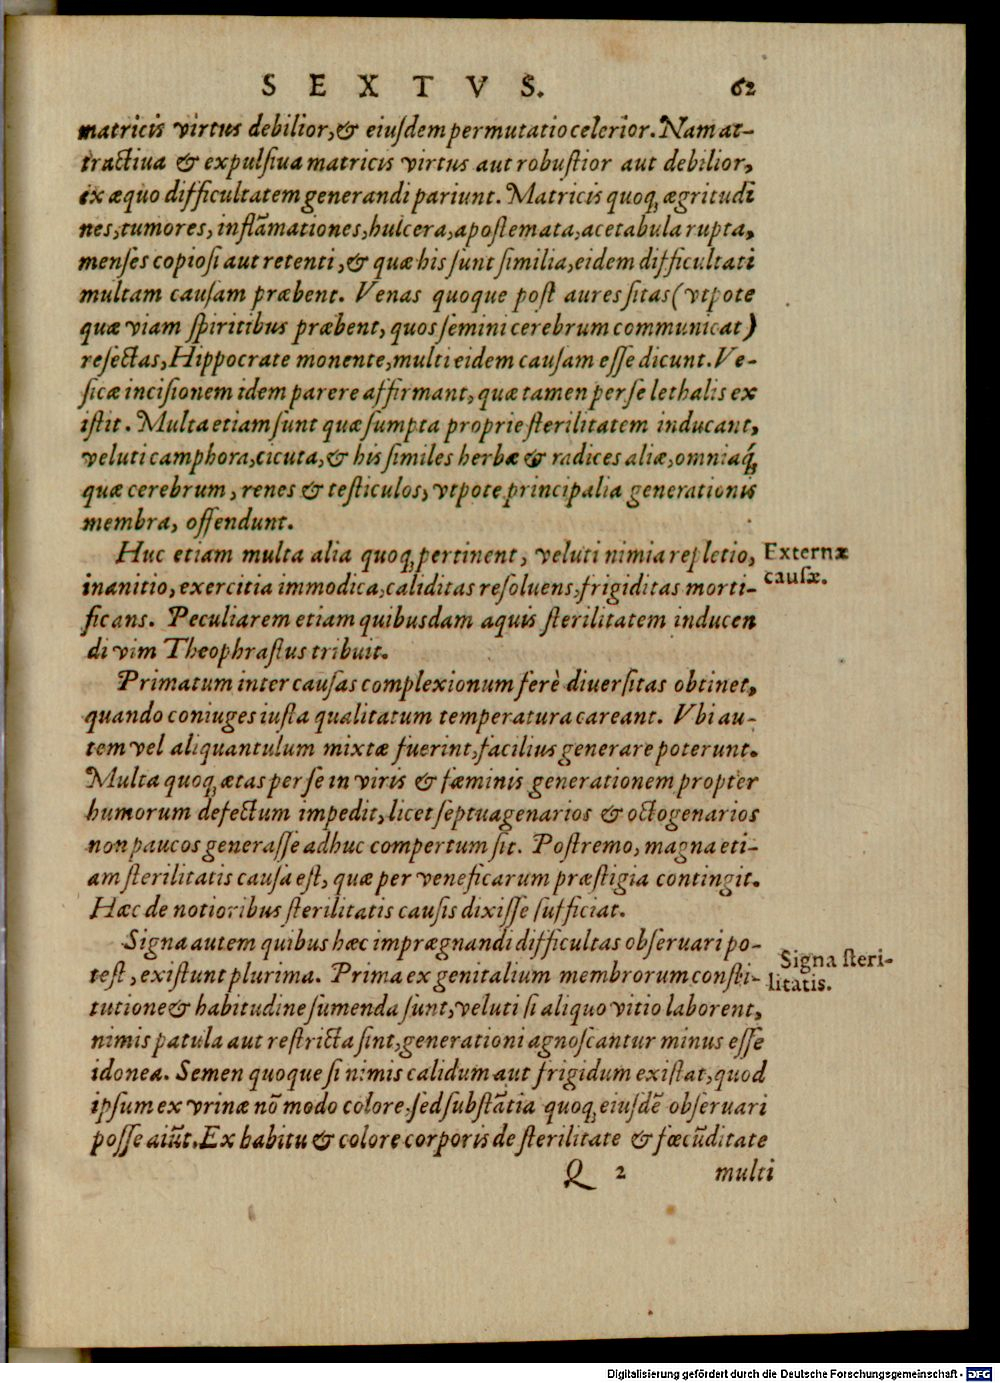 SEXTVS. 62
matricis virtus debilior, & eiusdem permutatio celerior. Nam at-
tractiua & expulsiua matricis virtus aut robustior aut debilior,
ex æquo difficultatem generandi pariunt. Matricis quoq; ægritudi
nes, tumores, inflãmationes, hulcera, apostemata, acetabula rupta,
menses copiosi aut retenti, & quæ his sunt similia, eidem difficultati
multam causam præbent. Venas quoque post aures sitas (vtpote
quæ viam spiritibus præbent, quos semini cerebrum communicat)
resectas, Hippocrate monente, multi eidem causam esse dicunt. Ve-
sicæ incisionem idem parere affirmant, quæ tamen per se lethalis ex
istit. Multa etiam sunt quæ sumpta proprie sterilitatem inducant,
veluti camphora, cicuta, & his similes herbæ & radices aliæ, omniaq́;
quæ cerebrum, renes & testiculos, vtpote principalia generationis
membra, offendunt.
Huc etiam multa alia quoq; pertinent, veluti nimia repletio,
Externæ
causæ.
inanitio, exercitia immodica, caliditas resoluens, frigiditas morti-
ficans. Peculiarem etiam quibusdam aquis sterilitatem inducen
di vim Theophrastus tribuit.
Primatum inter causas complexionum ferè diuersitas obtinet,
quando coniuges iusta qualitatum temperatura careant. Vbi au-
tem vel aliquantulum mixtæ fuerint, facilius generare poterunt.
Multa quoq; ætas per se in viris & fæminis generationem propter
humorum defectum impedit, licet septuagenarios & octogenarios
non paucos generasse adhuc compertum sit. Postremo, magna eti-
am sterilitatis causa est, quæ per veneficarum præstigia contingit.
Hæc de notioribus sterilitatis causis dixisse sufficiat.
Signa autem quibus hæc imprægnandi difficultas obseruari po-
Signa steri-
litatis.
test, existunt plurima. Prima ex genitalium membrorum consti-
tutione & habitudine sumenda sunt, veluti si aliquo vitio laborent,
nimis patula aut restricta sint, generationi agnoscantur minus esse
idonea. Semen quoque si nimis calidum aut frigidum existat, quod
ipsum ex vrinæ nõ modo colore, sed substãtia quoq; eiusdẽ obseruari
posse aiũt. Ex habitu & colore corporis de sterilitate & fœcũditate
Q 2 multi
Digitalisierung gefördert durch die Deutsche Forschungsgemeinschaft - DFG